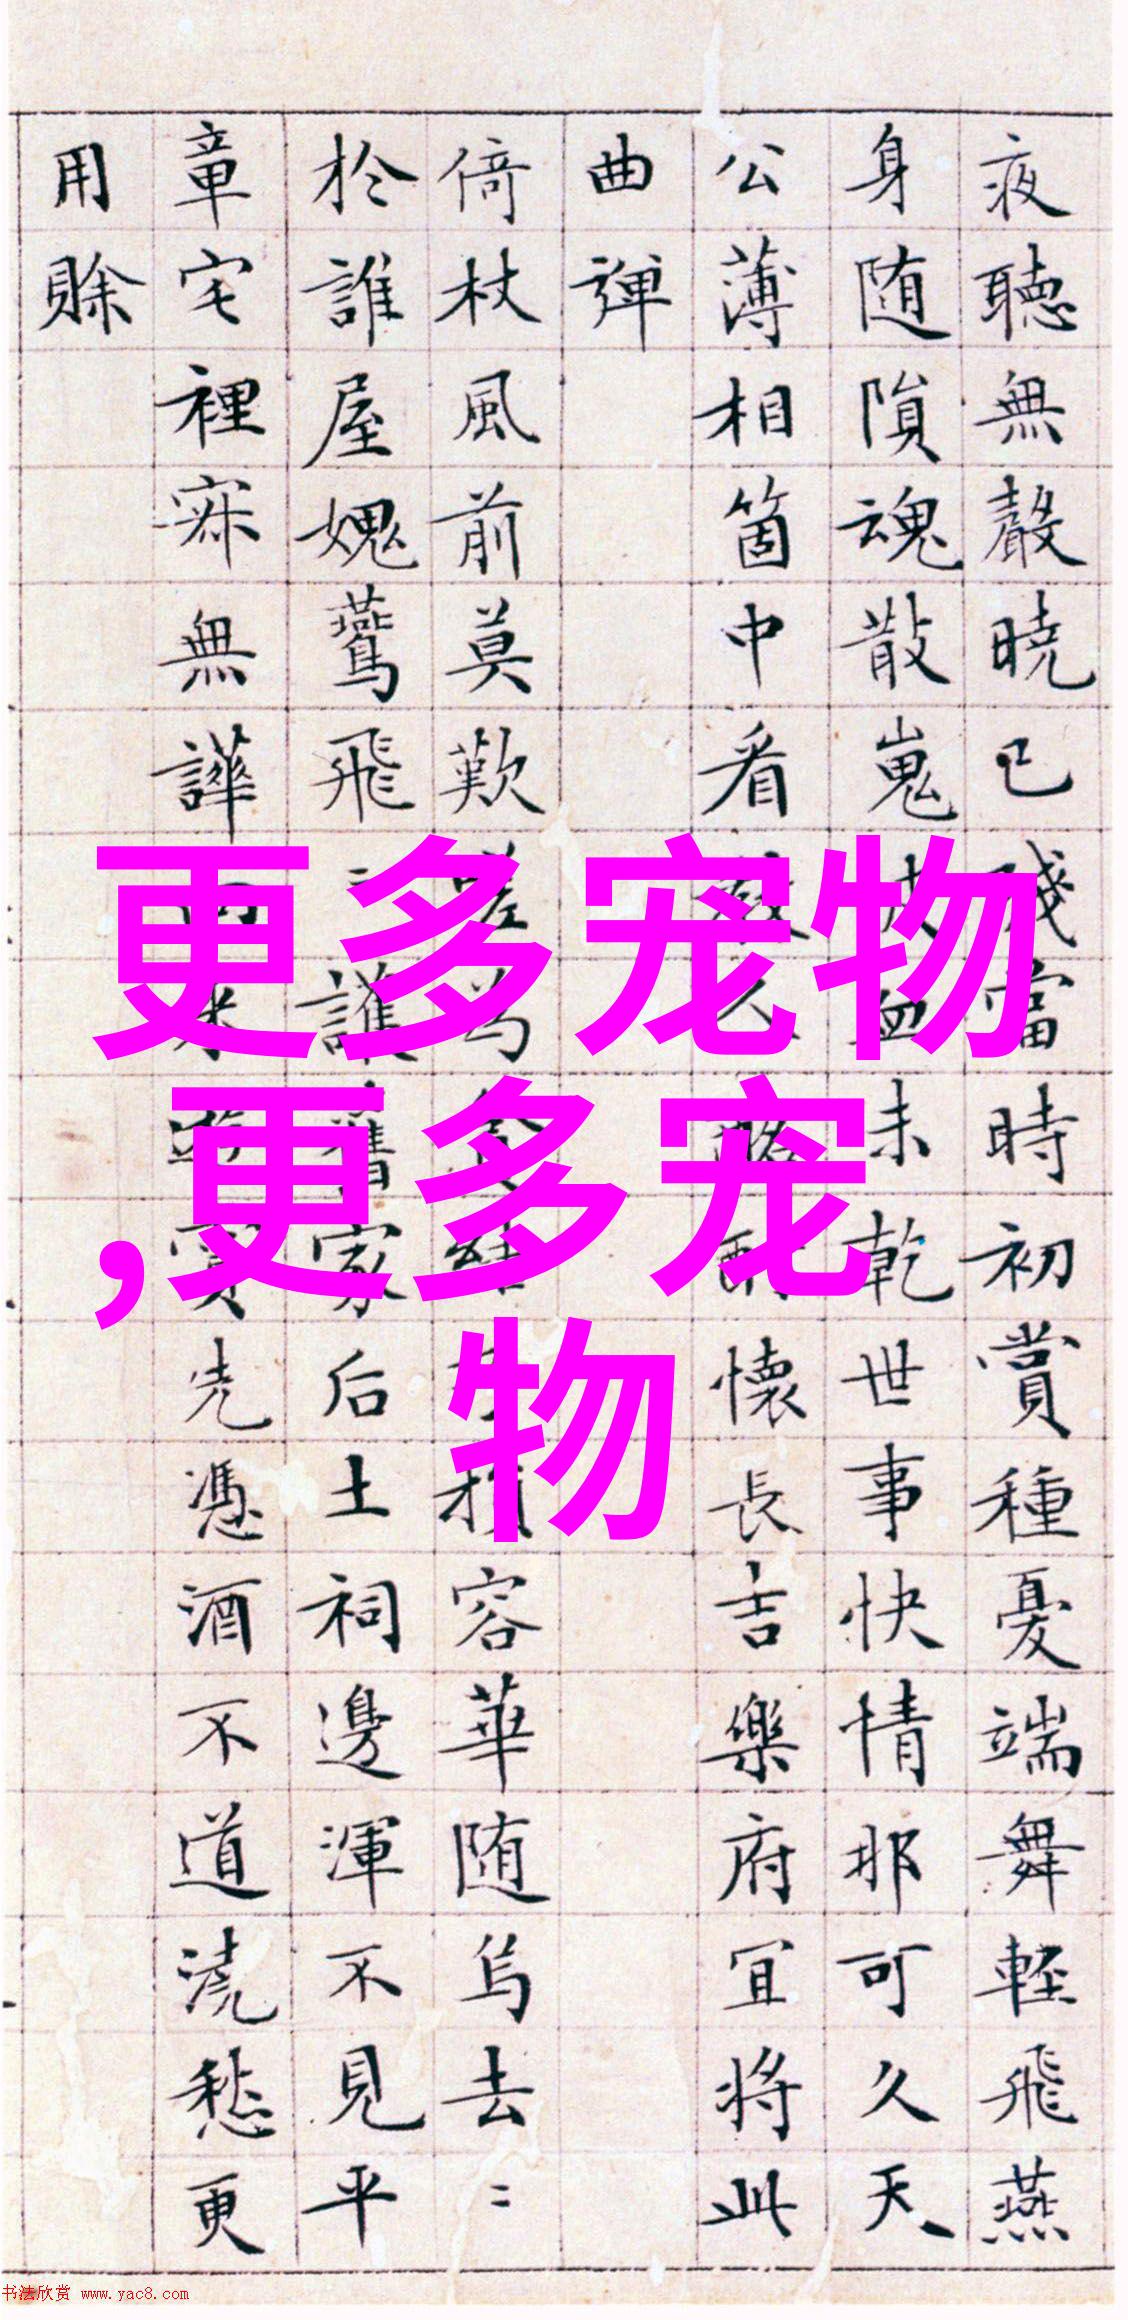 夜聽無聲曉已殘當時初賞種憂端舞輕飛燕
身随隕魂散嵬血未乾世事快情那可久天
公薄相箇中看懷長吉樂府宜將此
曲彈
倚杖風前莫歎嗟為容華随烏去〻
於誰屋媿鷰飛護舊家后土祠邊渾不見平
章宅裡寂無譁來遊賞先憑酒不道澆愁更
用賒
更多宠物
,更多宠
物
书法欣赏 www.yac8.com